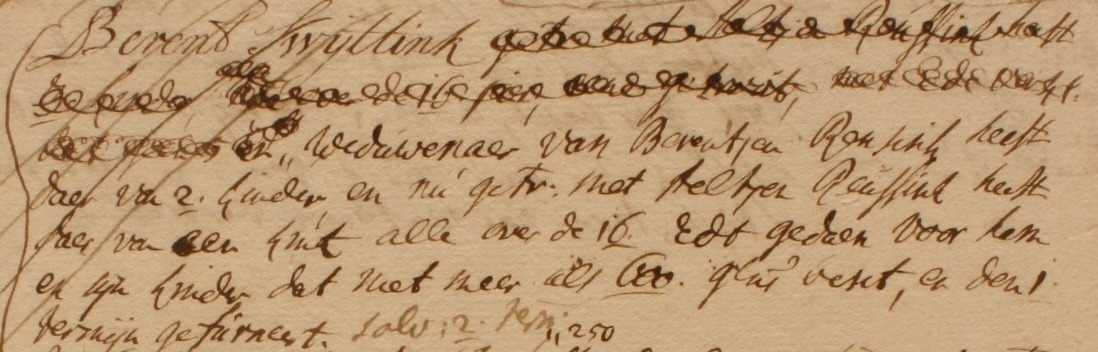 Berent Swijttink getr. met Feltjen Reussink heeft
over de 16 jaer, met Ede
Weduwenaer van Berentjen Rensink heeft
daer van 2. kinder en nú getr. met Feltjen Reússink heeft
daer van een kint alle over de 16. Edt gedaen voor hem
en sijn kinder dat niet meer als 600. gúl besit, en den 1.
termijn gefúrneert. Solv: 2. Term: ,, 250